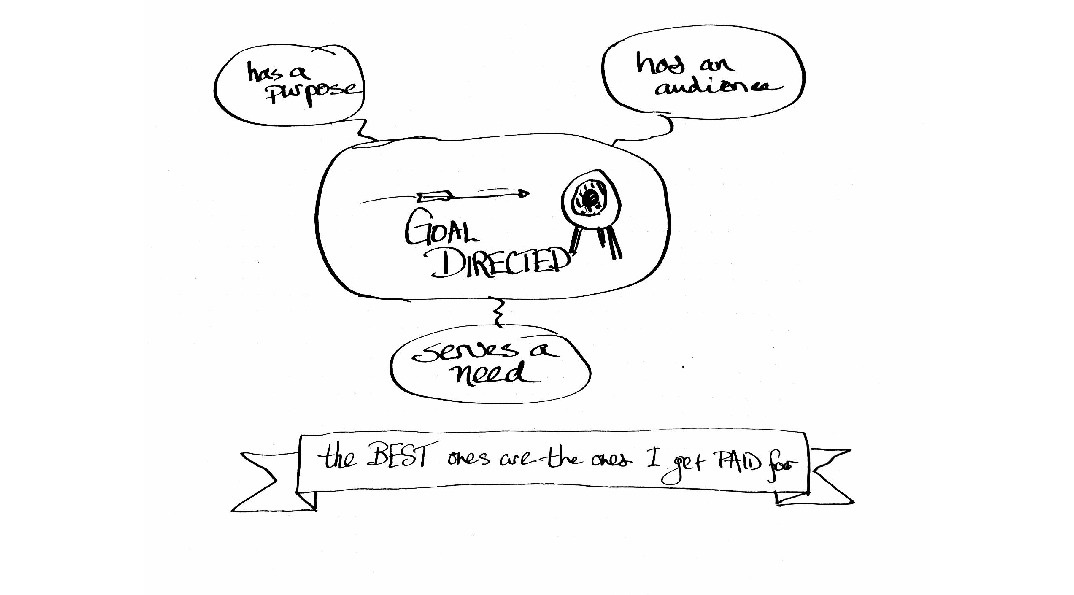 has a
purpose
has an
audience
GOAL
DIRECTED
serves a
need
the BEST ones are the ones I get PAID for